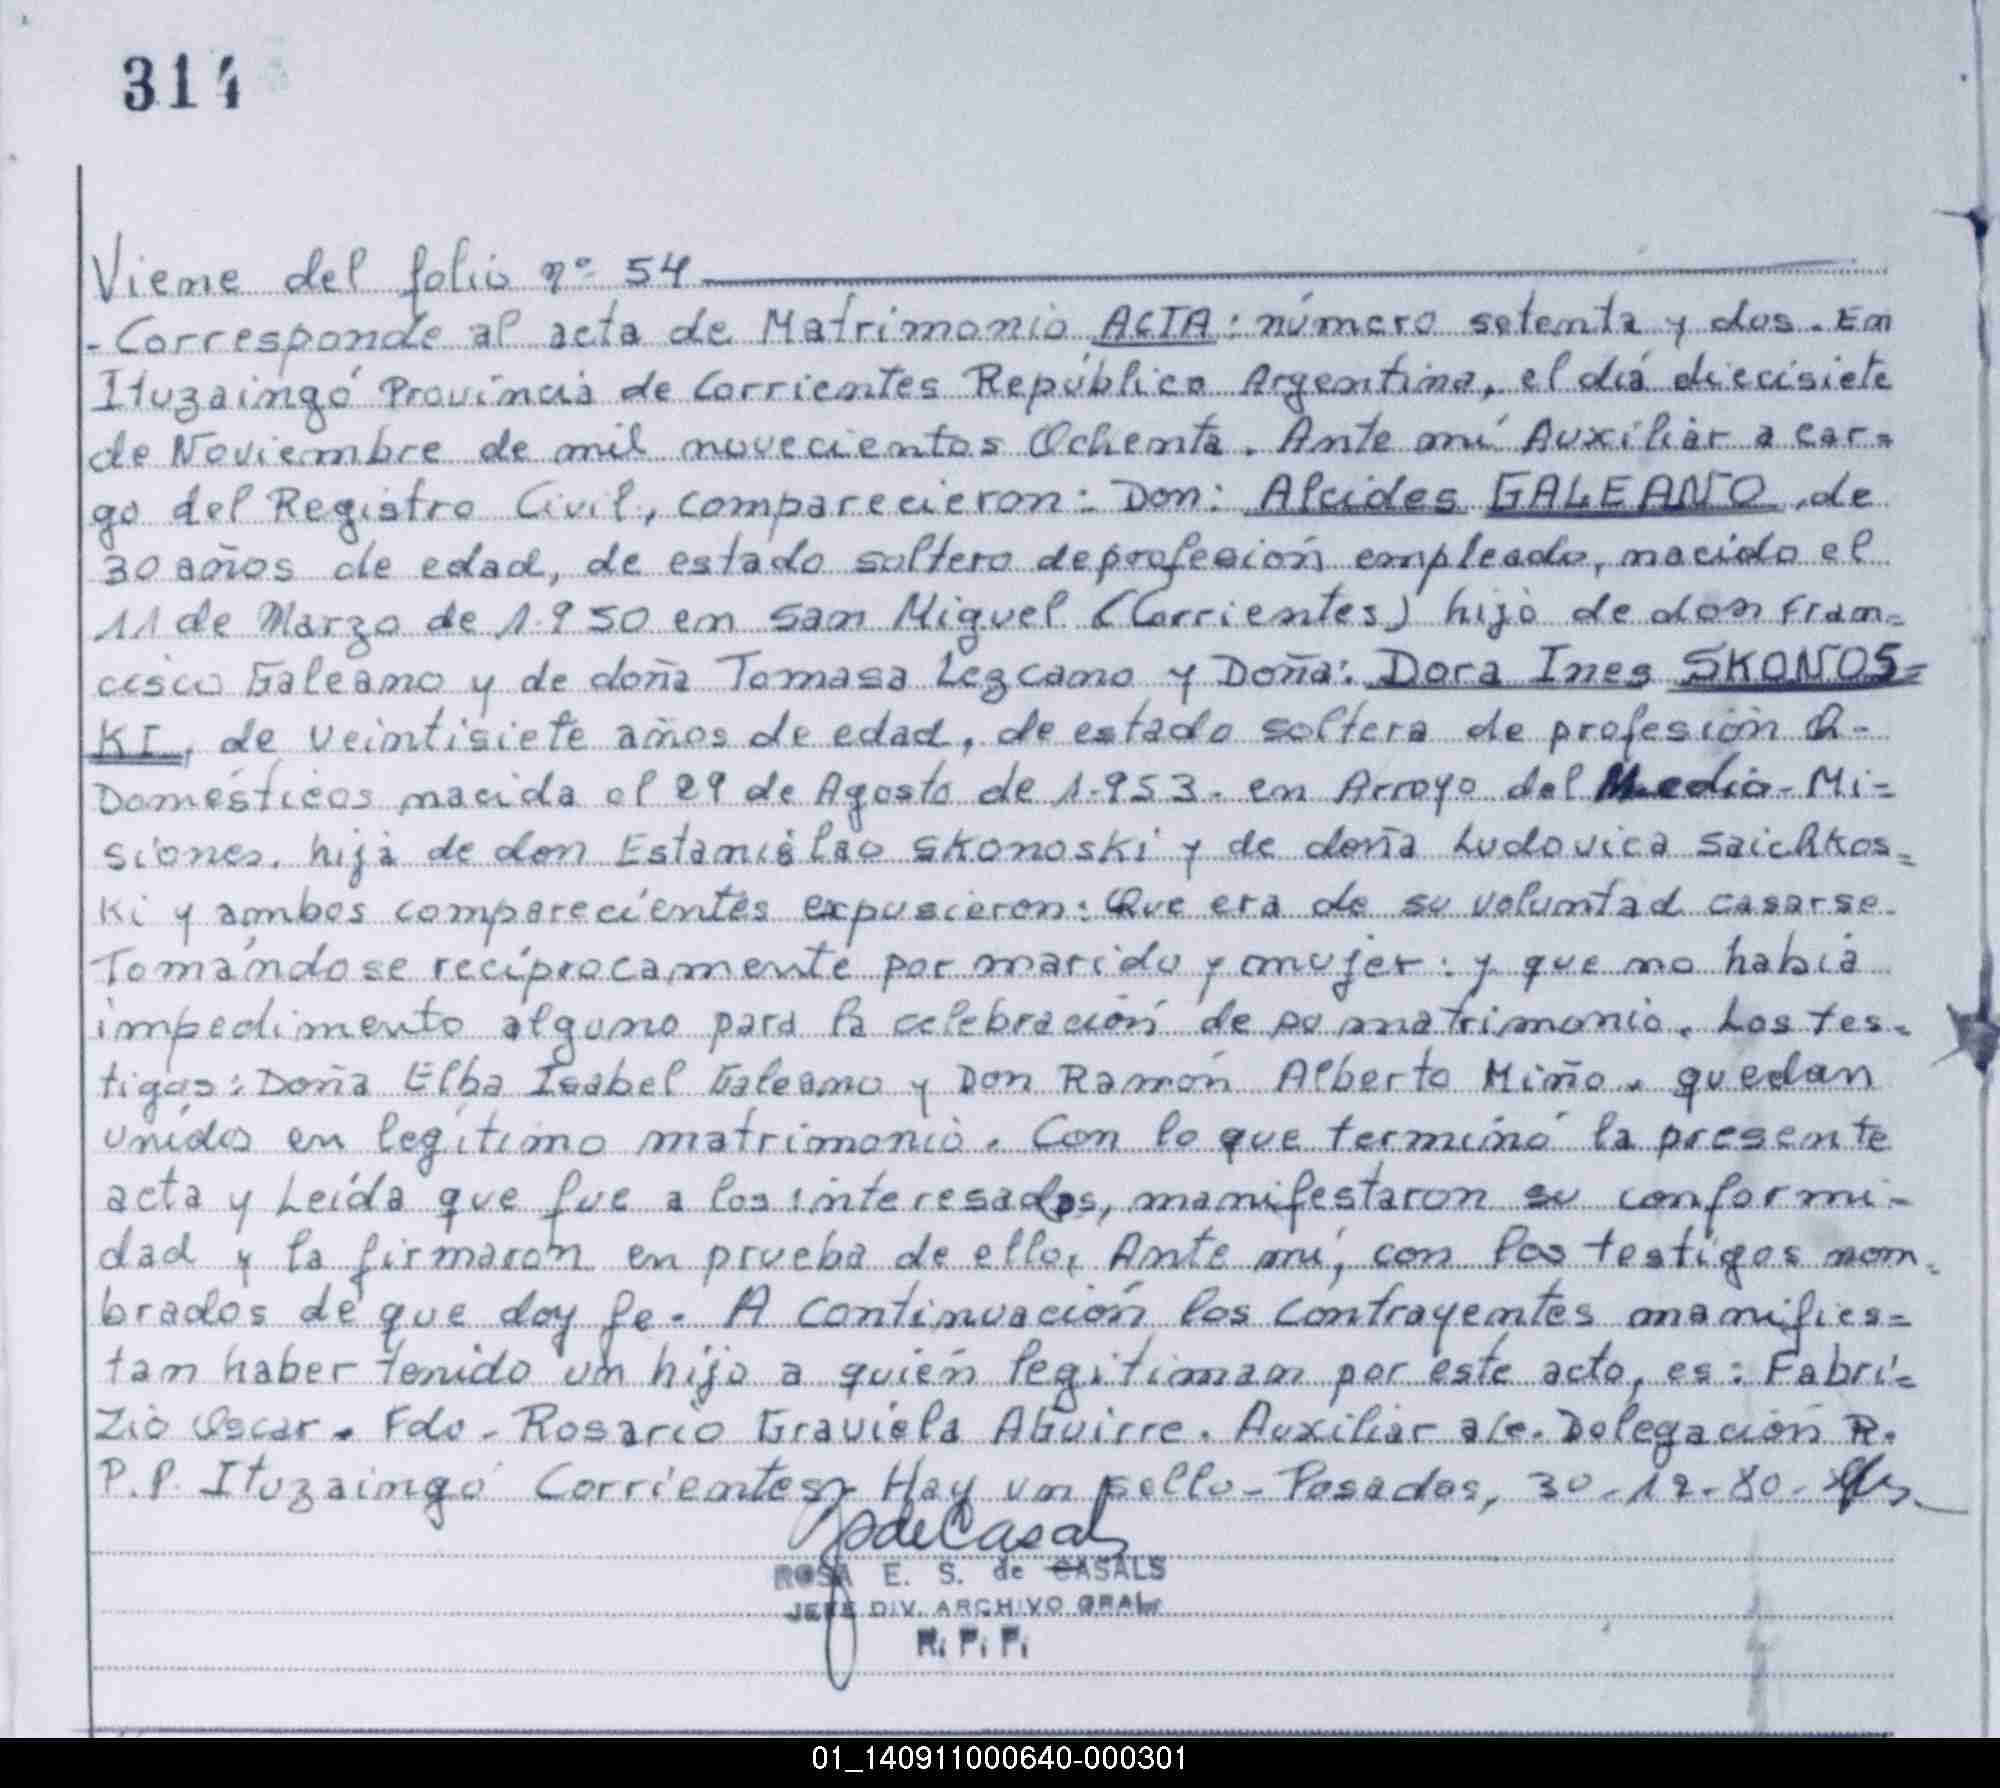 314
Viene del folio nº 54
- Corresponde al acta de Matrimonio ACTA: número setenta y dos. En
Ituzaingó Provincia de Corrientes República Argentina, el día diecisiete
de Noviembre de mil novecientos Ochenta. Ante mí Auxiliar a car=
go del Registro Civil, comparecieron: Don: Alcides GALEANO, de
30 años de edad, de estado soltero de profesión empleado, nacido el
11 de Marzo de 1.950 en San Miguel (Corrientes) hijo de don Fran=
cisco Galeano y de doña Tomasa Lezcano y Doña: Dora Ines SKONOS=
KI, de veintisiete años de edad, de estado soltera de profesión Q-
Domésticos nacida el 29 de Agosto de 1.953. en Arroyo del Medio- Mi=
siones. hija de don Estanislao Skonoski y de doña Ludovica Saichkos=
ki y ambos comparecientes expusieron: Que era de su voluntad casarse.
Tomándose recíprocamente por marido y mujer: y que no había
impedimento alguno para la celebración de su matrimonio. Los tes=
tigos: Doña Elba Isabel Galeano y Don Ramón Alberto Miño. quedan
unidos en legítimo matrimonio. Con lo que terminó la presente
acta y Leída que fue a los interesados, manifestaron su conformi-
dad y la firmaron en prueba de ello, Ante mí, con los testigos nom=
brados de que doy fe. A continuación los contrayentes manifies=
tan haber tenido un hijo a quién legitiman por este acto, es: Fabri=
zio Oscar. Fdo- Rosario Graviela Aguirre. Auxiliar a/c. Delegación R.
P.P. Ituzaingó Corrientes- Hay un sello- Posadas, 30-12-80-
deCasals
ROSA E. S. de CASALS
JEFE DIV. ARCHIVO GRAL.
R. P. P.
01_140911000640-000301